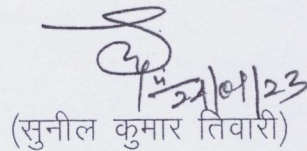 22/09/23
(सुनील कुमार तिवारी)